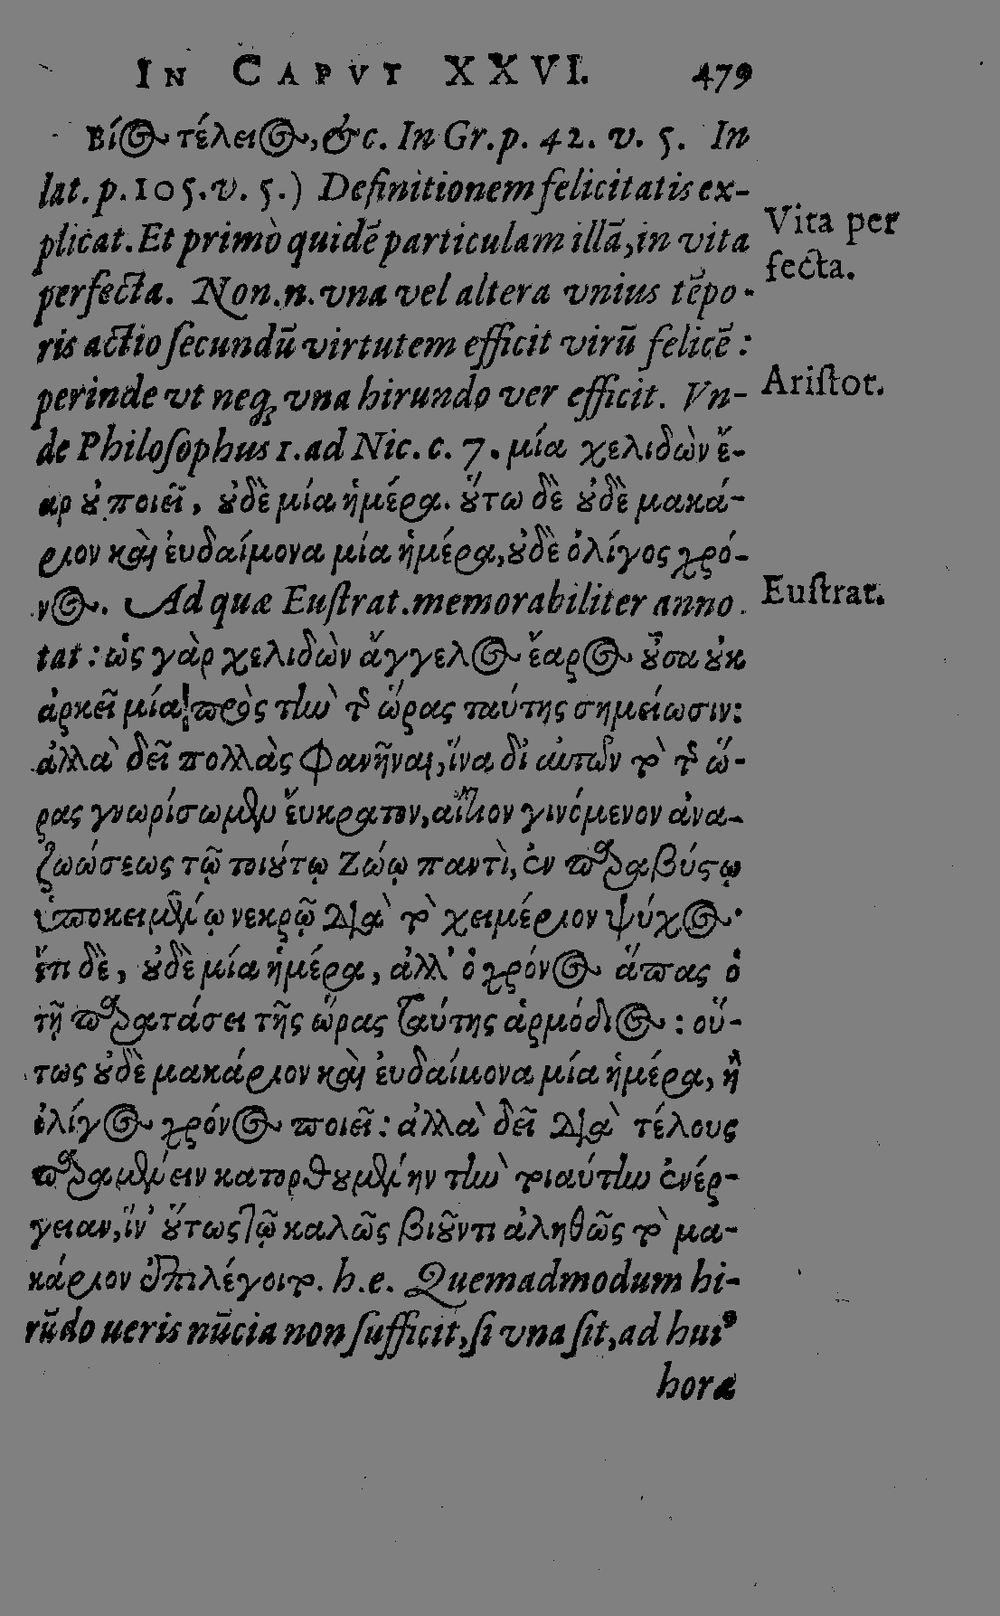 IN CAPVT XXVI. 479
βίος τέλειος, &c. In Gr. p. 42. v. 5. In
lat. p. 105. v. 5.) Definitionem felicitatis ex-
plicat. Et primò quidē particulam illā, in vita
Vita per
fecta.
perfecta. Non.n. vna vel altera vnius tēpo-
ris actio secundū virtutem efficit virū felicē :
perinde vt neq; vna hirundo ver efficit. Vn-
Aristot.
de Philosophus 1. ad Nic. c. 7. μία χελιδὼν ἔ-
αρ ȣ̓ ποιεῖ, ȣ̓δὲ μία ἡμέρα. ȣ̔́τω δὲ ȣ̓δὲ μακά-
ριον καὶ ἐυδαίμονα μία ἡμέρα, ȣ̓δὲ ὀλίγος χρό-
νος. Ad quæ Eustrat. memorabiliter anno
Eustrat.
tat : ὡς γὰρ χελιδὼν ἄγγελος ἔαρος ȣ̓͂σα ȣ̓κ
ἀρκεῖ μία πρὸς τὴν τῆς ὥρας ταύτης σημείωσιν:
ἀλλὰ δεῖ πολλὰς φανῆναι, ἵνα δι' αὐτῶν τὸ τῆς ὥ-
ρας γνωρίσωμεν ἔυκρατον, αἴτιον γινόμενον ἀνα-
ζωώσεως τῷ τοιȣ́τῳ ζώῳ παντὶ, ἐν παραβύστῳ
ὑποκειμένῳ νεκρῷ διὰ τὸ χειμέριον ψύχος·
ἔτι δὲ, ȣ̓δὲ μία ἡμέρα, ἀλλ' ὁ χρόνος ἅπας ὁ
τῇ παρατάσει τῆς ὥρας ταύτης ἁρμόδιος : οὕ-
τως ȣ̓δὲ μακάριον καὶ ἐυδαίμονα μία ἡμέρα, ἢ
ὀλίγος χρόνος ποιεῖ : ἀλλὰ δεῖ διὰ τέλους
παραμένειν κατορθȣμένην τὴν τοιαύτην ἐνέρ-
γειαν, ἵν' ȣ̔́τως τῷ καλῶς βιȣ͂ντι ἀληθῶς τὸ μα-
κάριον ἐπιλέγοιτο. h.e. Quemadmodum hi-
rūdo ueris nūcia non sufficit, si vna sit, ad huiꝰ
horæ